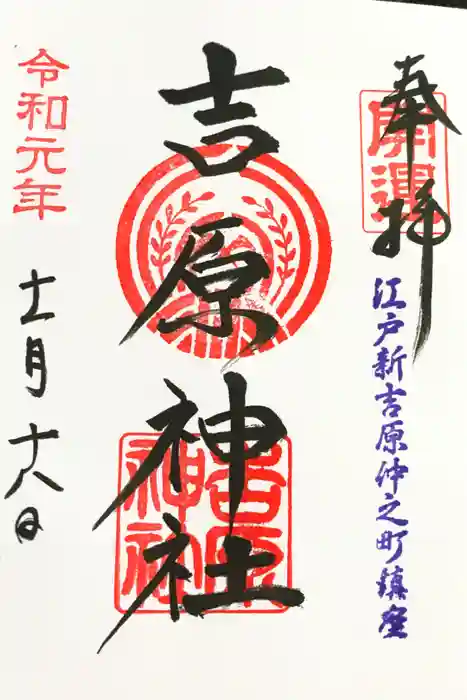 奉拝
開運
江戸新吉原仲之町鎮座
吉原神社
吉原神社
令和元年
十一月十八日